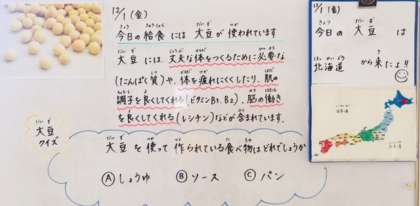 12/1(金)
今日の給食には大豆が使われています
大豆には、丈夫な体をつくるために必要な
(たんぱく質)や、体を疲れにくくしたり、肌の
調子を良くしてくれる(ビタミンB1、B2)、脳の働き
を良くしてくれる(レシチン)などが含まれています。
大豆
クイズ
大豆を使って作られている食べ物はどれでしょうか
Ⓐしょうゆ Ⓑソース Ⓒパン
12/1(金)
今日の大豆は
北海道から来たよ!!